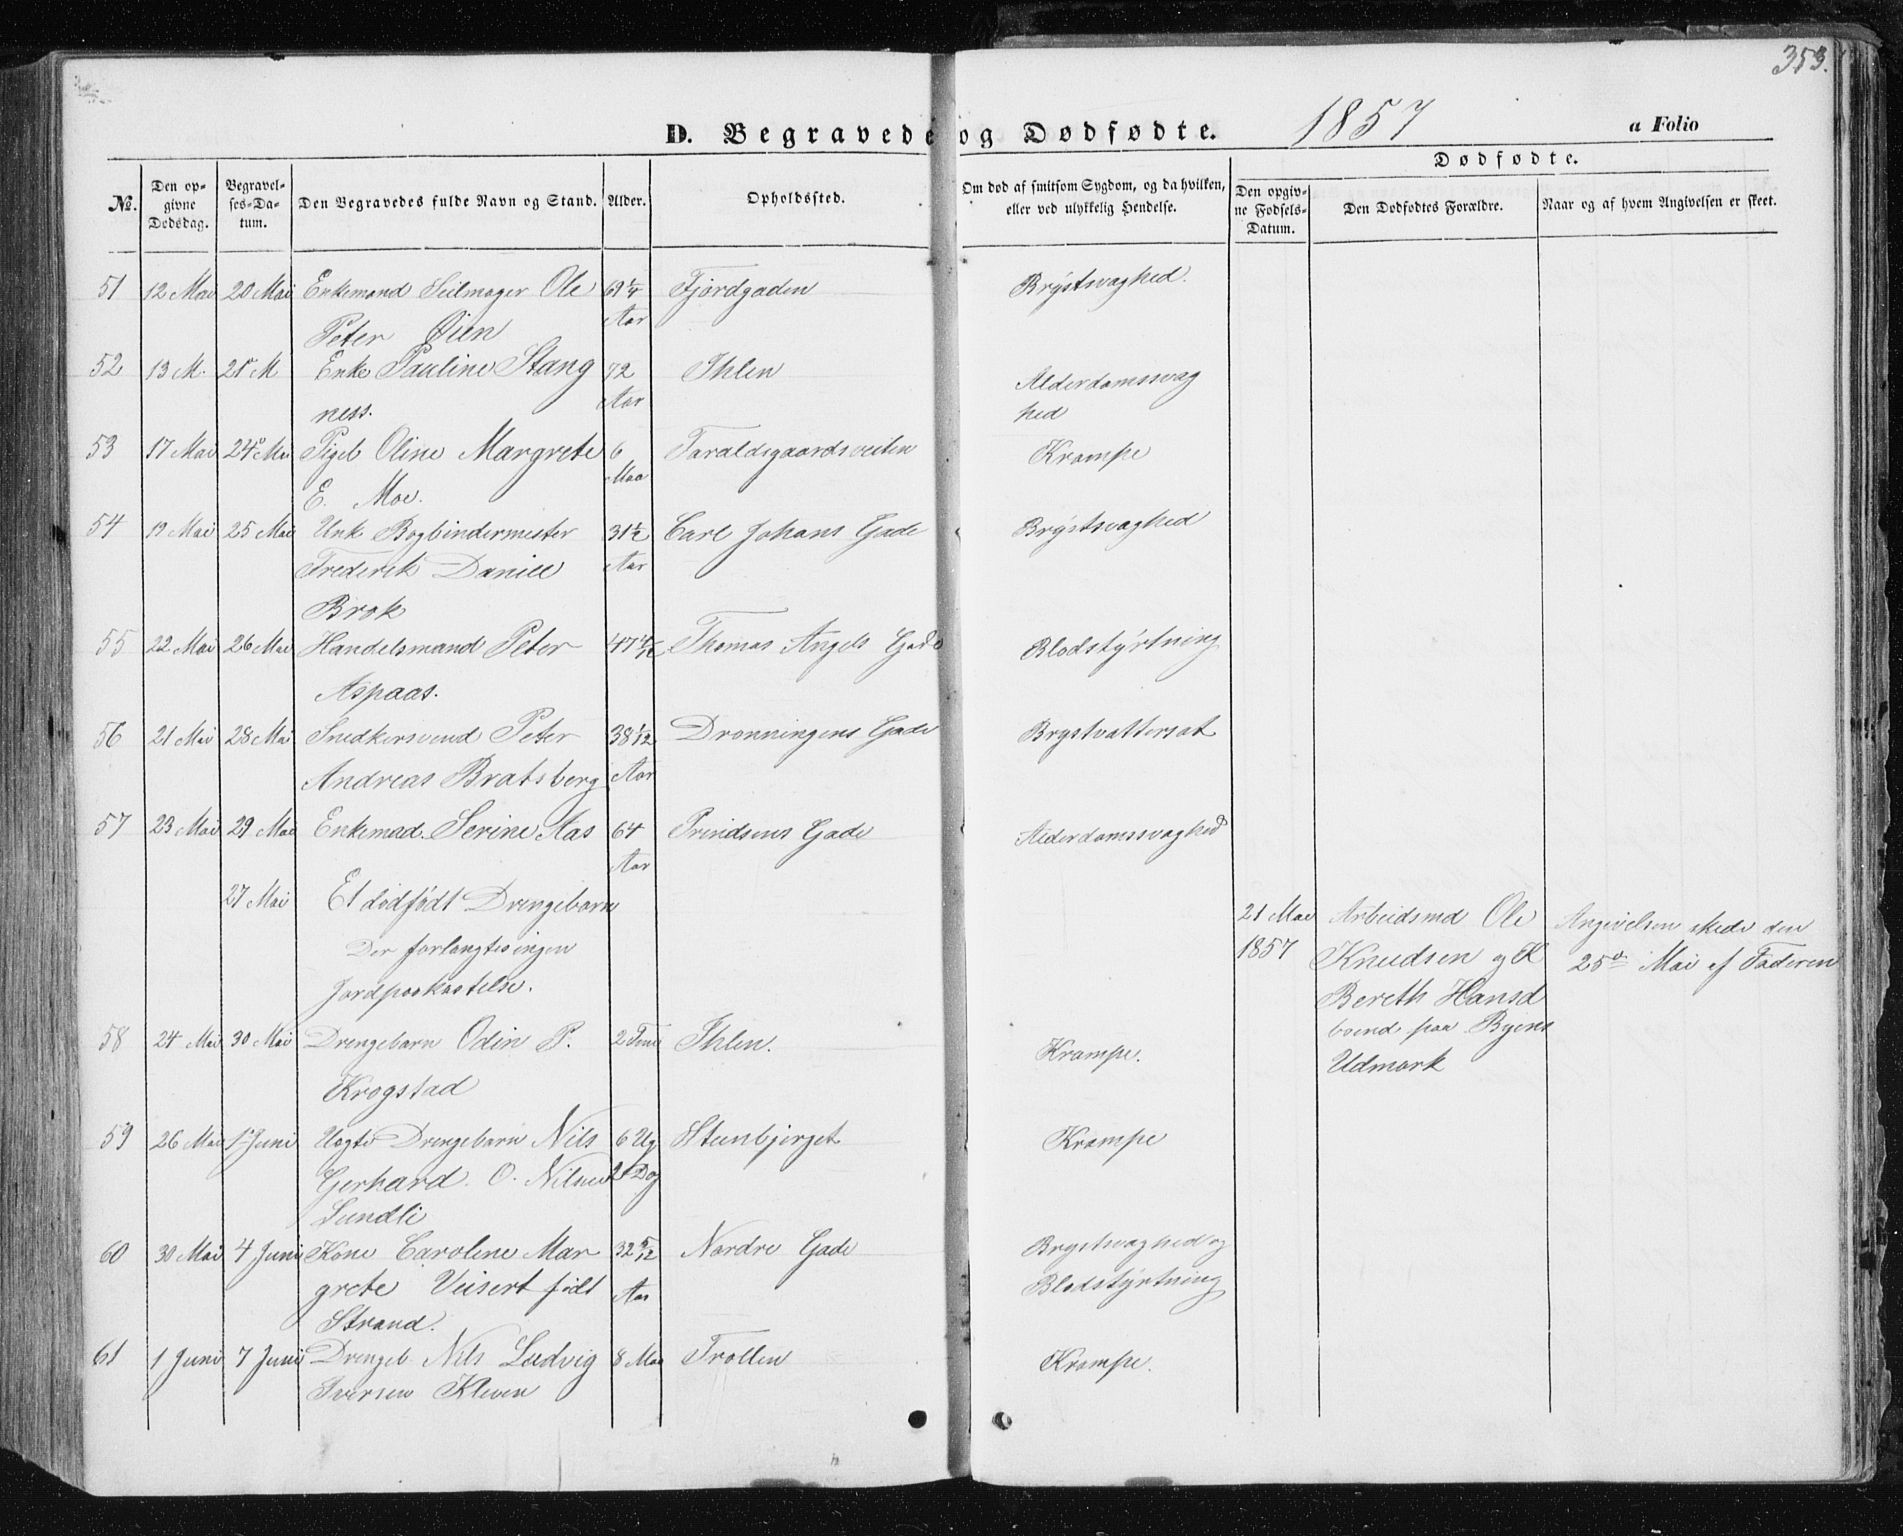 353.
D. Begravede og Dødfødte. 1857 a Folio
Dødfødte.
No. Den opgivne Dødsdag. Begravelses-Datum. Den Begravedes fulde Navn og Stand. Alder. Opholdssted. Om død af smitsom Sygdom, og da hvilken, eller ved ulykkelig Hendelse. Den opgivne Fødsels-Datum. Den Dødfødtes Forældre. Naar og af hvem Angivelsen er skeet.
51 12 Mai 20 Mai Enkemand Seilmager Ole 69 1/4 Fjordgaden Brystsvaghed.
Peter Øien Aar
52 13 M. 21 M Enke Pauline Stang 72 Ihlen Alderdomssvag
ness. Aar hed
53 17 Mai 24 Mai Pigeb Oline Margrete 6 Taraldsgaardsveiten Krampe
E. Moe. Maa
54 19 Mai 25 Mai Unk Bogbindermester 31 1/2 Carl Johans Gade Brystsvaghed
Frederik Daniel Aar
Brok
55 22 Mai 26 Mai Handelsmand Peter 47 4/12 Thomas Angels Gade Blodstyrtning
Aspaas.
56 21 Mai 28 Mai Snedkersvend Peter 38 1/12 Dronningens Gade Brystvattersot
Andreas Bratsberg Aar
57 23 Mai 29 Mai Enkemad. Serine Aas 64 Prindsens Gade Alderdomssvaghed
Aar
27 Mai Et dødfødt Drengebarn 21 Mai Arbeidsmd Ole Angivelsen skede den
Der forlangtes ingen 1857 Knudsen og K 25de Mai af Faderen
Jordpaakastelse. Bereth Hansd
58 24 Mai 30 Mai Drengebarn Odin P. 2 Time Ihlen. Krampe. boend paa Byens
Krogstad Udmark
59 26 Mai 1 Juni Uægte Drengebarn Nils 6 Ug Steenbjerget Krampe
Gerhard. O. Nilsen Dag
Sundli
60 30 Mai 4 Juni Kone Caroline Mar 32 5/12 Nordre Gade Brystsvaghed og
grete Veisert født Aar Blodstyrtning
Strand.
61 1 Juni 7 Juni Drengeb. Nils Ludvig 8 Maa Trollen Krampe.
Iversen Kleven